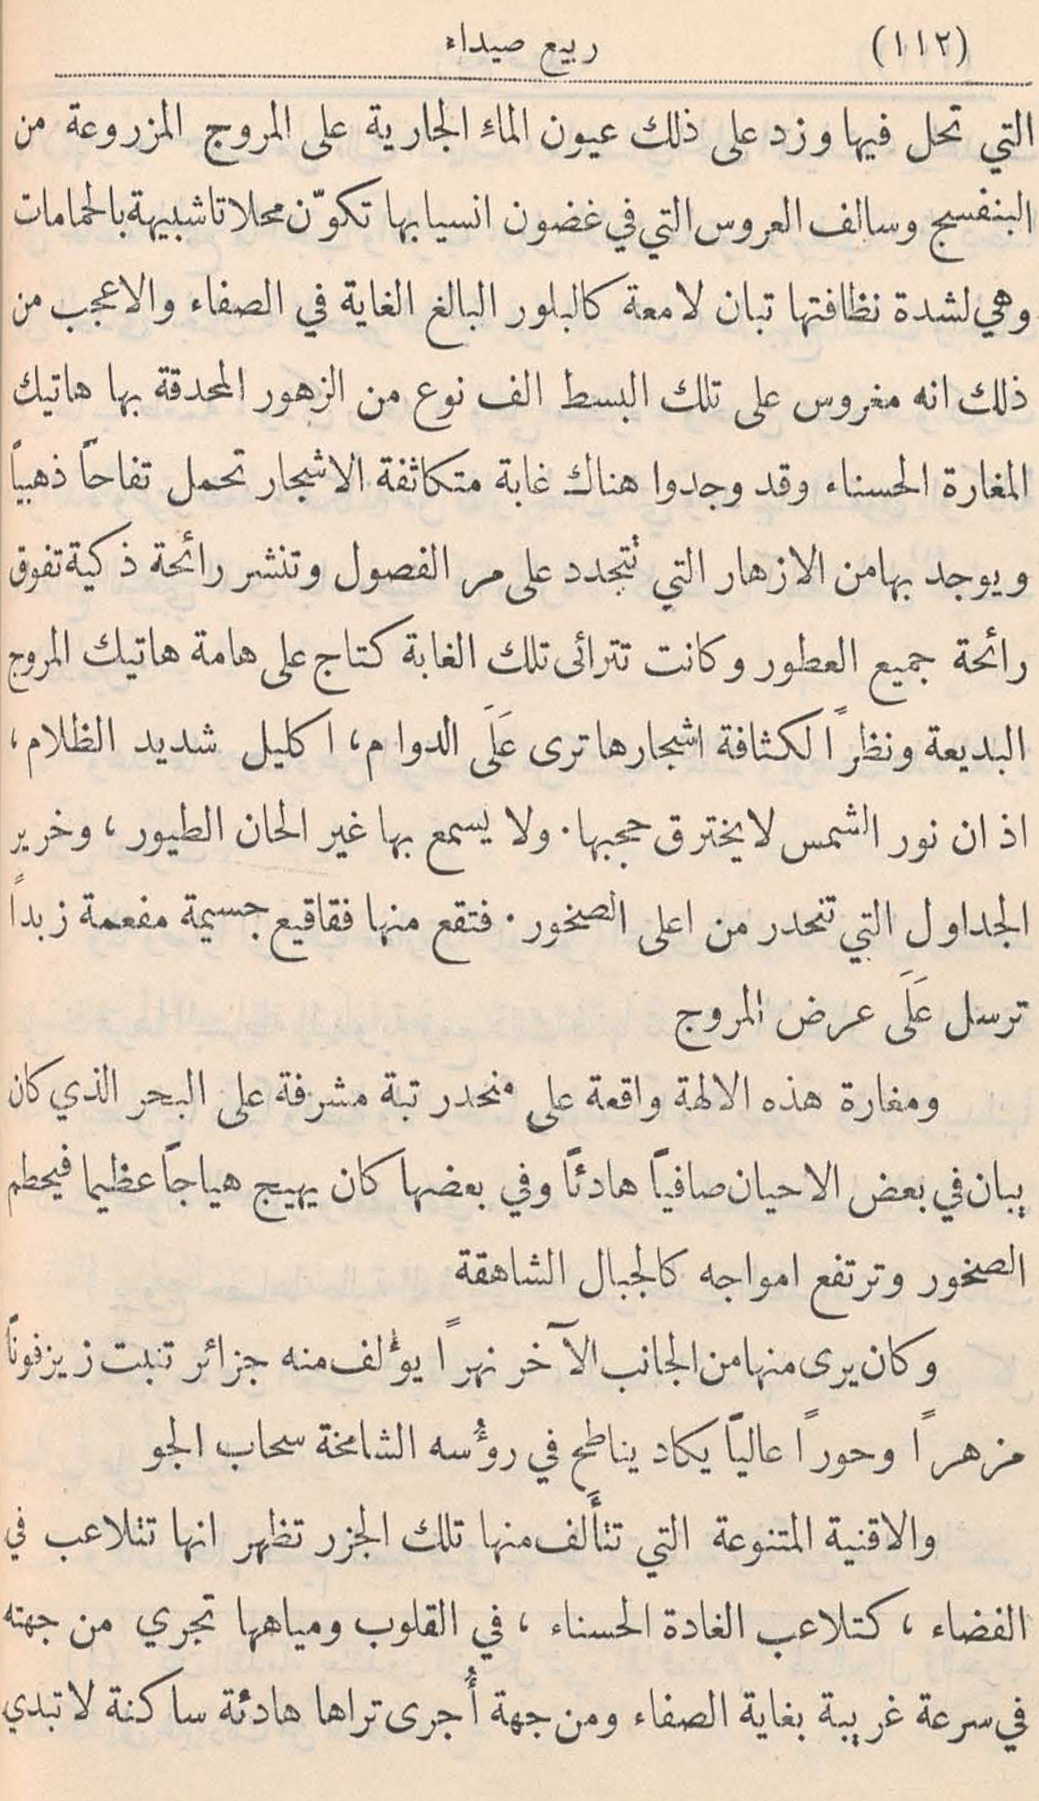 (١١٢) ربيع صيداء
التي تحل فيها وزد على ذلك عيون الماء الجارية على المروج المزروعة من
البنفسج وسالف العروس التي في غضون انسيابها تكوّن محلاتا شبيهة بالحمامات
وهي لشدة نظافتها تبان لامعة كالبلور البالغ الغاية في الصفاء والاعجب من
ذلك انه مغروس على تلك البسط الف نوع من الزهور المحدقة بها هاتيك
المغارة الحسناء وقد وجدوا هناك غابة متكاثفة الاشجار تحمل تفاحاً ذهبياً
ويوجد بها من الازهار التي نتجدد على مر الفصول وتنشر رائحة ذكية تفوق
رائحة جميع العطور وكانت تترائى تلك الغابة كتاج على هامة هاتيك المروج
البديعة ونظراً لكثافة اشجارها ترى عَلَى الدوام، اكليل شديد الظلام،
اذ ان نور الشمس لا يخترق حجبها. ولا يسمع بها غير الحان الطيور، وخرير
الجداول التي تنحدر من اعلى الصخور. فتقع منها فقاقيع جسيمة مفعمة زبداً
ترسل عَلَى عرض المروج
ومغارة هذه الالهة واقعة على منحدر تبة مشرفة على البحر الذي كان
يبان في بعض الاحيان صافياً هادئاً وفي بعضها كان يهيج هياجاً عظيما فيحطم
الصخور وترتفع امواجه كالجبال الشاهقة
وكان يرى منها من الجانب الآخر نهراً يؤلف منه جزائر تنبت زيزفوناً
مزهراً وحوراً عالياً يكاد يناطح في رؤُسه الشامخة سحاب الجو
والاقنية المتنوعة التي تتأَلف منها تلك الجزر تظهر انها تتلاعب في
الفضاء، كتلاعب الغادة الحسناء، في القلوب ومياهها تجري من جهته
في سرعة غريبة بغاية الصفاء ومن جهة أُجرى تراها هادئة ساكنة لا تبدي